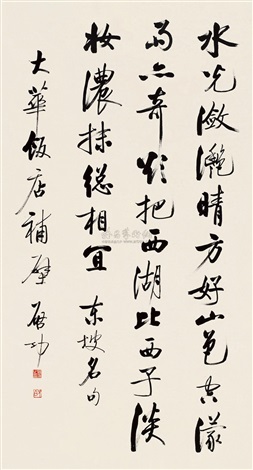 水光潋滟晴方好山色空濛
雨亦奇欲把西湖比西子淡
妆浓抹总相宜 东坡名句
大华饭店补壁 启功